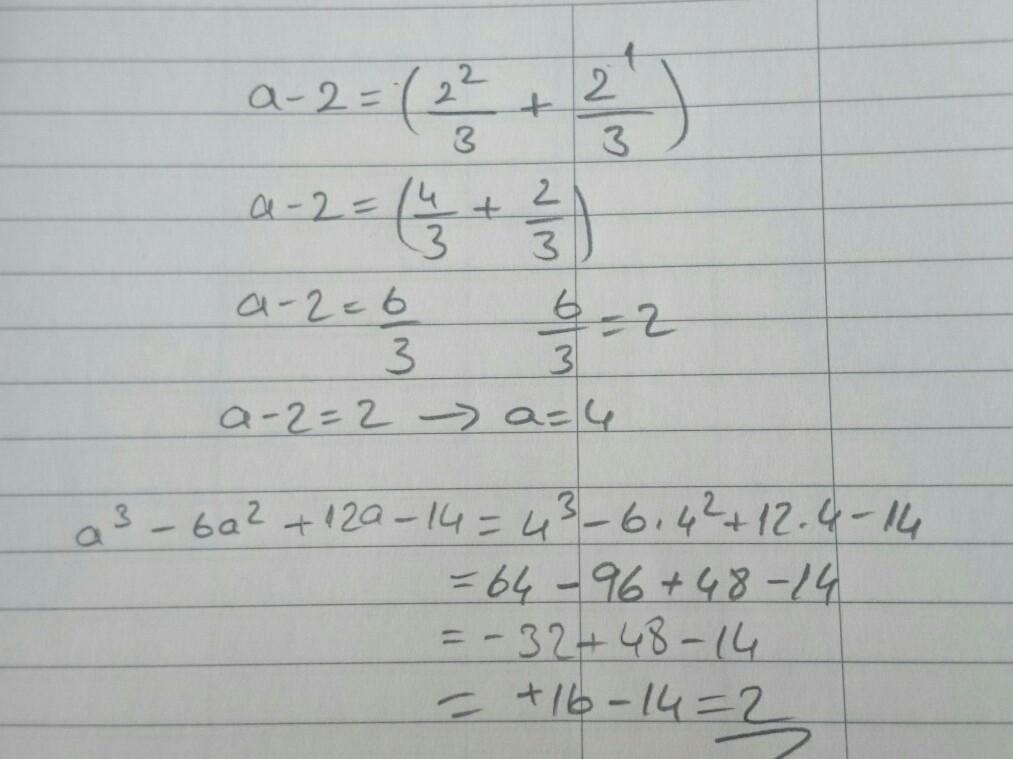 a-2 = (2²/3 + 2¹/3)
a-2 = (4/3 + 2/3)
a-2 = 6/3 6/3 = 2
a-2 = 2 → a = 4
a³ - 6a² + 12a - 14 = 4³ - 6·4² + 12·4 - 14
= 64 - 96 + 48 - 14
= -32 + 48 - 14
= +16 - 14 = 2